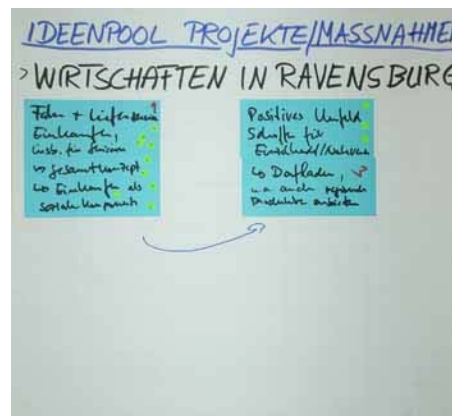 IDEENPOOL PROJEKTE/MASSNAHME
> WIRTSCHAFTEN IN RAVENSBURG
Fahr + Lieferservice
Einkaufen,
insb. für Senioren
↳ Gesamtkonzept
↳ Einkaufen als
soziale Komponente
Positives Umfeld
Schaffen für
Einzelhandel/Nahvers
↳ Dorfladen,
u.a. auch regionale
Produkte anbieten